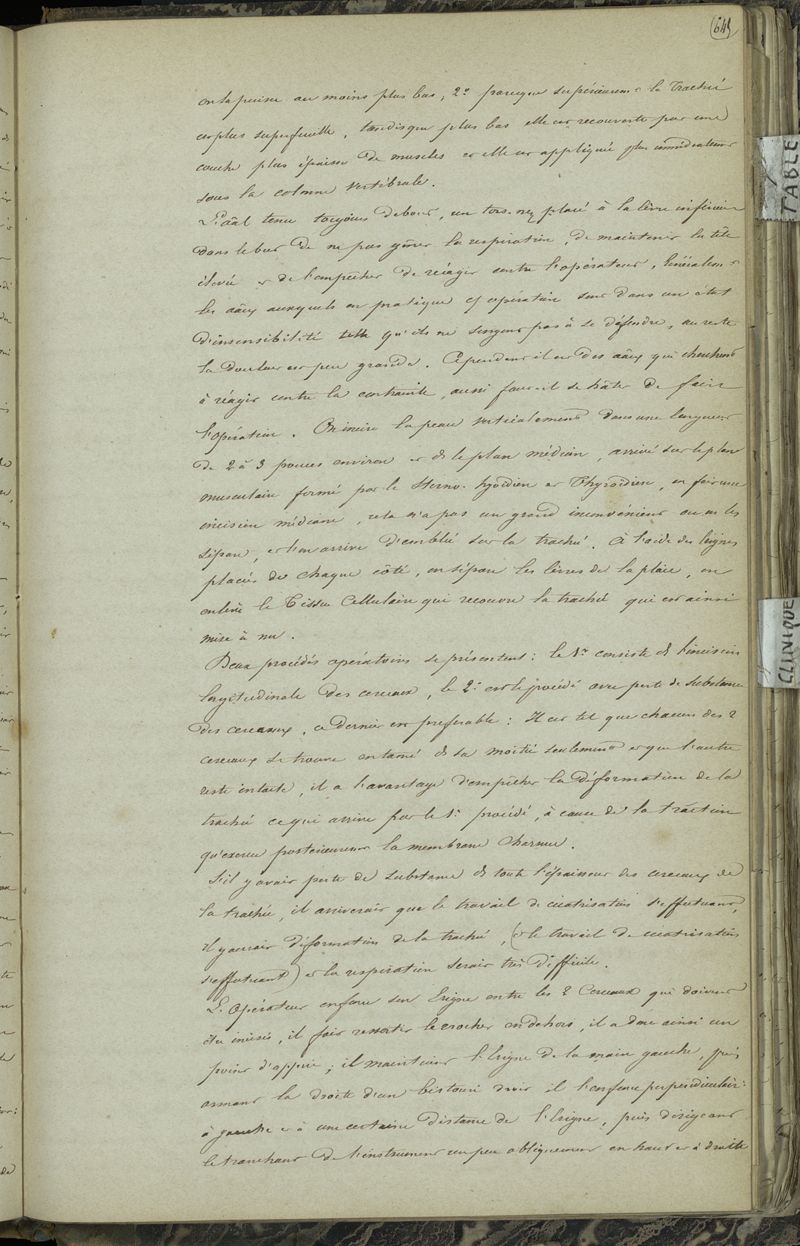 645
au moins plus bas, 2° parceque supérieurem^t la Trachée
est plus superficielle, tandisque plus bas elle est recouverte par une
couche plus épaisse de muscles et elle est appliquée plus immédiatement
sous la colonne vertébrale.
L'aal tenu toujours debout, un tors-nez placé à la lèvre inférieure
dans le but de ne pas gêner la respiration, de maintenir la tête
élevée et de l'empêcher de réagir contre l'opérateur, Généralem^t
les aaux auxquels on pratique c/ opération sont dans un état
d'insensibilité telle qu'ils ne songent pas à se défendre, au reste
la douleur est peu grande. Cependant il est des aaux qui cherchent
à réagir contre la contrainte, aussi faut-il se hâter de faire
l'opération. On incise la peau verticalement dans une longueur
de 2 à 3 pouces environ et ds le plan médian, arrivé sur le plan
musculaire formé par le Sterno-hyoïdien et Thyroïdien, on fait une
incision médiane, cela n'a pas un grand inconvénient ou on les
sépare, et l'on arrive d'emblée sur la trachée. A l'aide des Erignes
placées de chaque côté, on sépare les lèvres de la plaie, on
enlève le Tissu Cellulaire qui recouvre la trachée qui est ainsi
mise à nu.
Deux procédés opératoires se présentent: le 1er consiste ds l'incision
longitudinale des cerceaux, le 2e est le procédé avec perte de substance
des cerceaux, ce dernier est préférable: Il est tel que chacun des 2
cerceaux se trouve entamé ds sa moitié seulement et que l'autre
reste intacte, il a l'avantage d'empêcher la déformation de la
trachée ce qui arrive par le 1er procédé, à cause de la traction
qu'exerce postérieurement la membrane charnue.
S'il y avait perte de substance ds toute l'épaisseur des cerceaux de
la trachée, il arriverait que le travail de cicatrisation s'effectuant,
il y aurait déformation de la trachée, (et le travail de cicatrisation
s'effectuant) et la respiration serait très difficile.
L'Opérateur enfonce son Erigne entre les 2 Cerceaux qui doivent
être incisés, il fait ressortir le crochet en dehors, il a donc ainsi un
point d'appui; il maintient l'Erigne de la main gauche, puis
armant la droite d'un bistouri droit il l'enfonce perpendiculair^t
à gauche et à une certaine distance de l'Erigne, puis dirigeant
le tranchant de l'instrument un peu obliquement en haut et à droite
TABLE
CLINIQUE